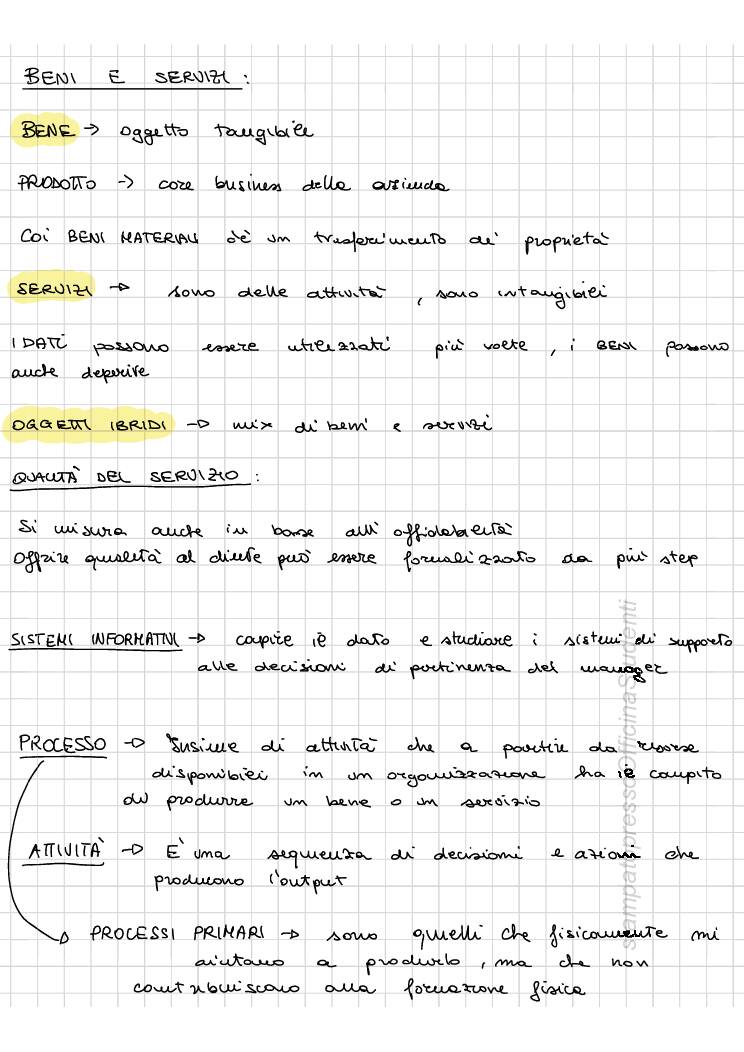 BENI E SERVIZI :
BENE → oggetto tangibile
PRODOTTO → core business della azienda
Coi BENI MATERIALI c'è un trasferimento di proprietà
SERVIZI → sono delle attività , sono intangibili
I DATI possono essere utilizzati più volte , i BENI possono
anche deperire
OGGETTI IBRIDI → mix di beni e servizi
QUALITÀ DEL SERVIZIO :
Si misura anche in base all' affidabilità
Offrire qualità al cliente può essere formalizzato da più step
SISTEMI INFORMATIVI → capire il dato e studiare i sistemi di supporto
alle decisioni di pertinenza del manager
PROCESSO → Insieme di attività che a partire da risorse
disponibili in un organizzazione ha il compito
di produrre un bene o un servizio
ATTIVITÀ → E' una sequenza di decisioni e azioni che
producono l'output
→ PROCESSI PRIMARI → sono quelli che fisicamente mi
aiutano a produrlo , ma che non
contribuiscono alla formazione fisica
stampatopressoOfficinaStudenti